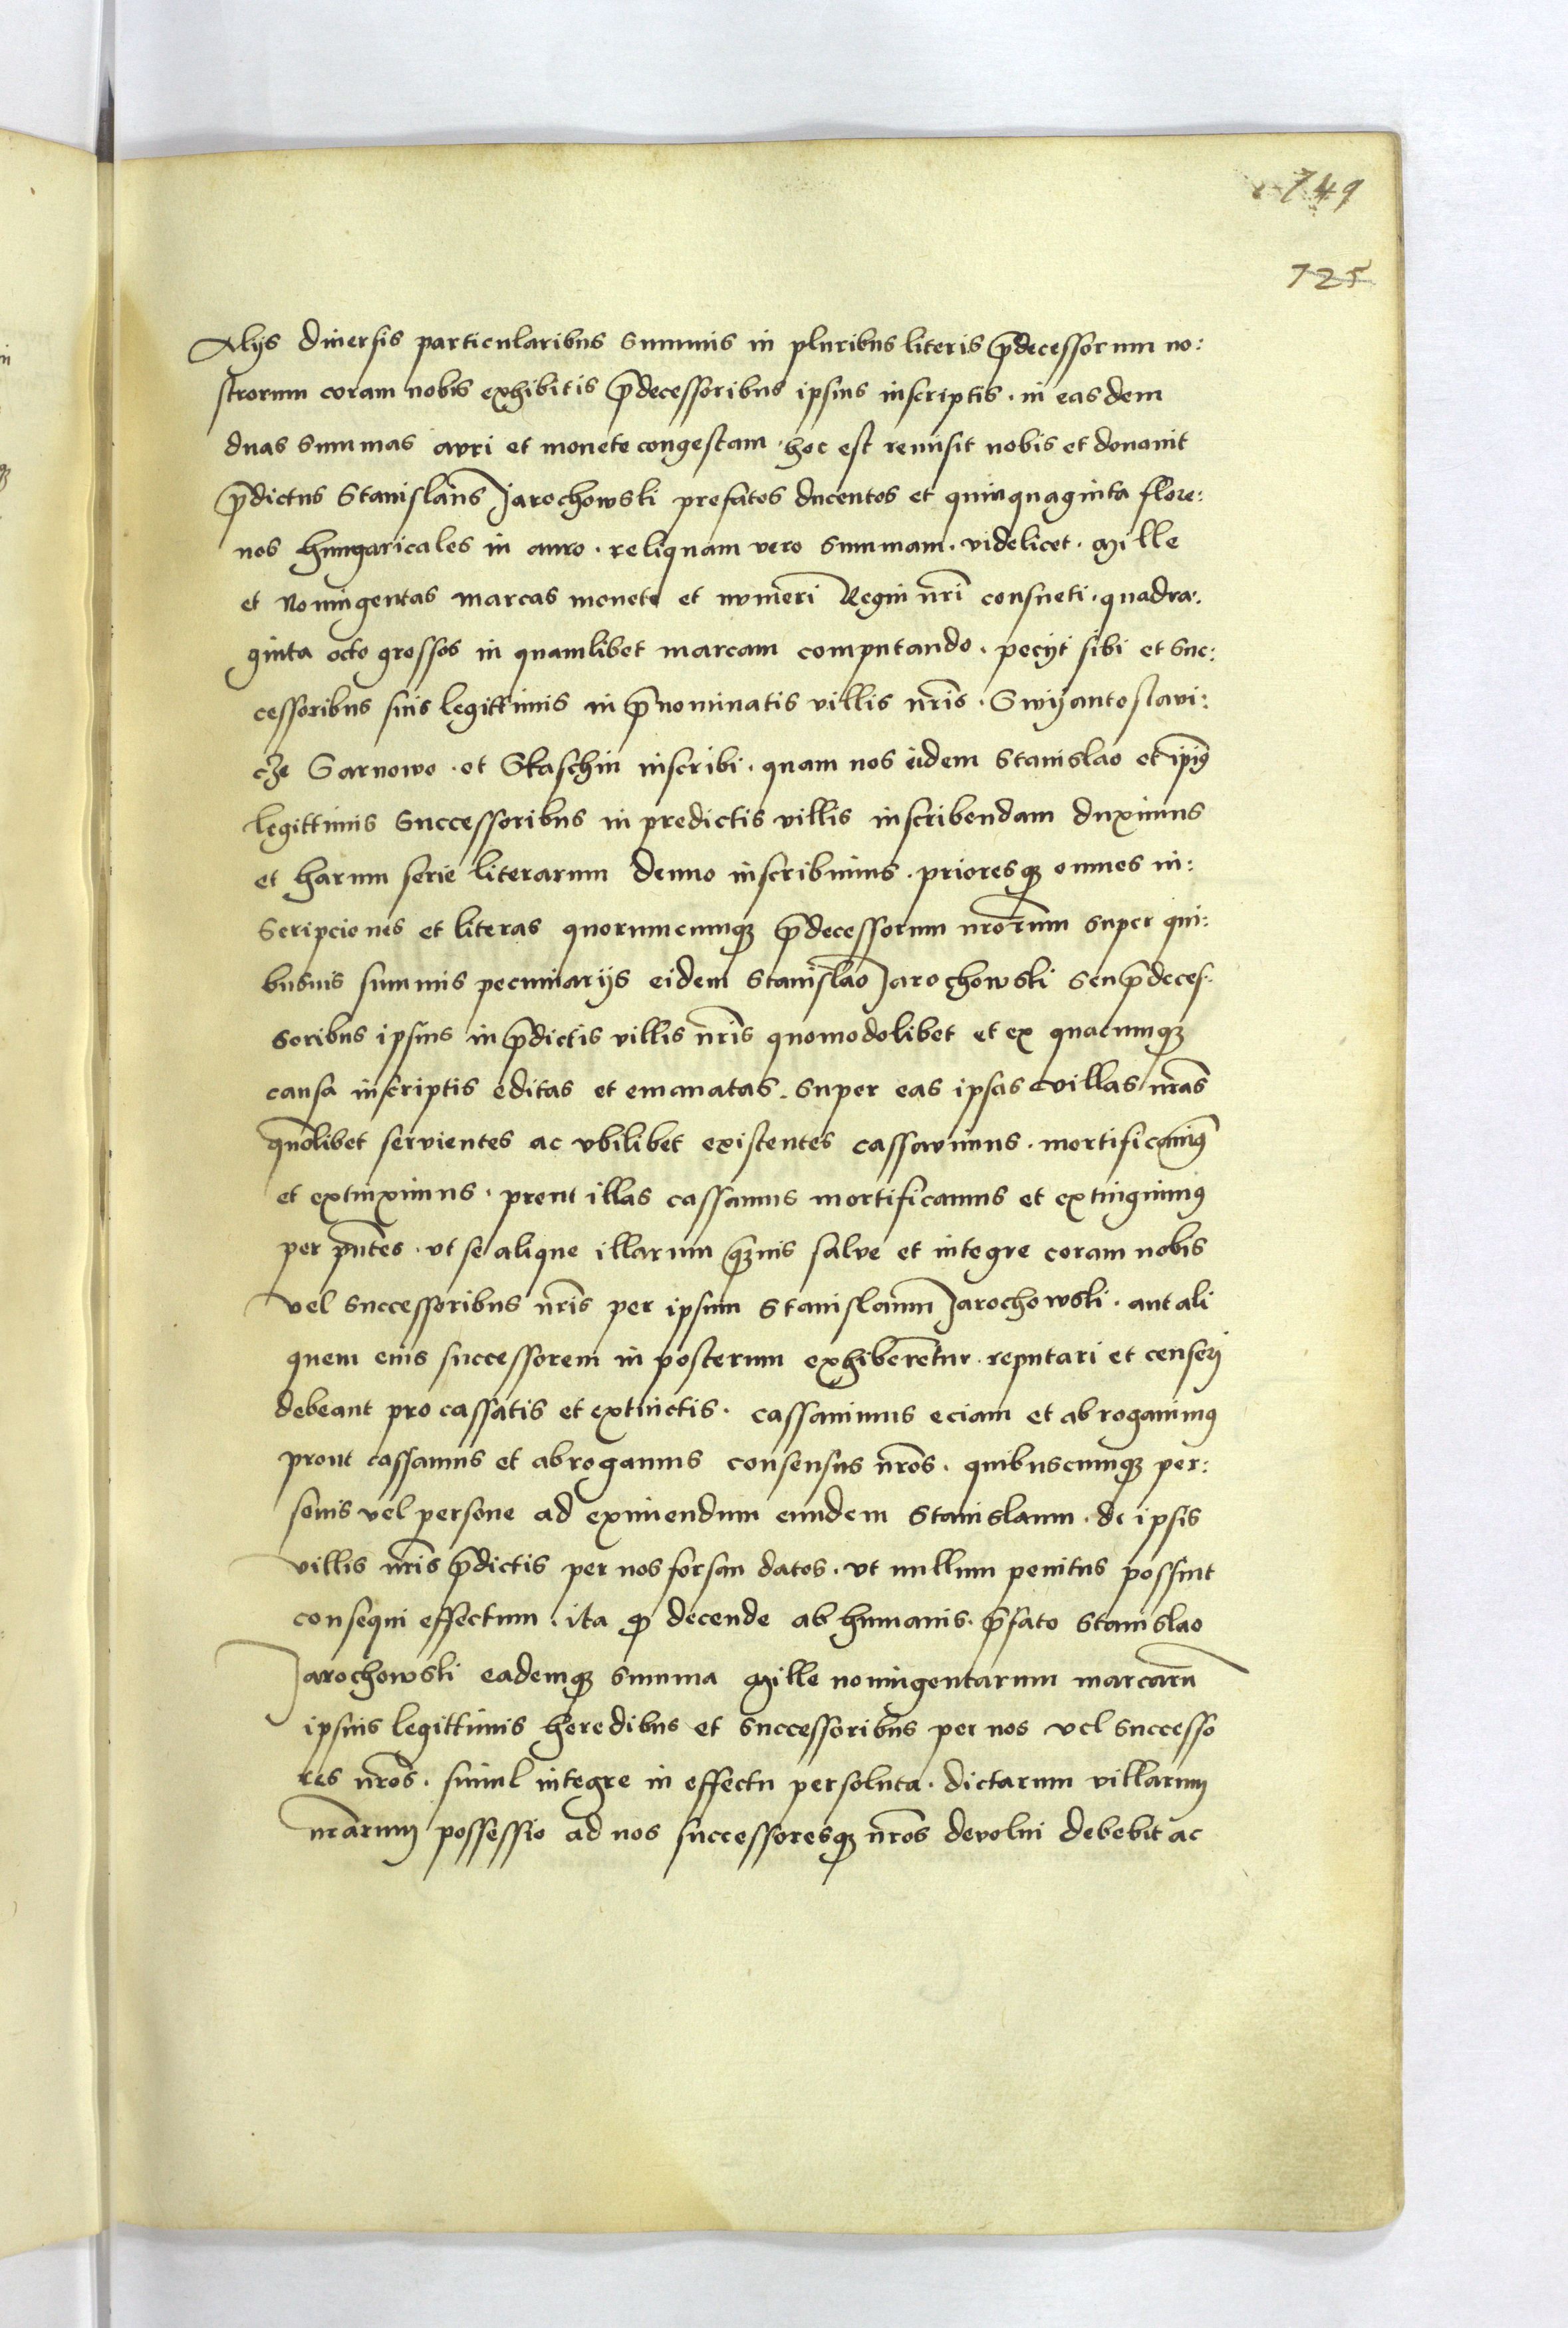 749
725
Alijs diuersis particularibus summis in pluribus literis p̄decessorum no:
strorum coram nobis exhibitis p̄decessoribus ipsius inscriptis . in easdem
duas summas auri et monete congestam . hoc est remisit nobis et donauit
p̄dictus Stanislaus Jarochowski prefatos ducentos et quinquaginta flore:
nos hungaricales in auro . reliquam vero summam . videlicet . Mille
et Noningentas marcas monete et numeri Regni nr̄i consueti . quadra:
ginta octo grossos in quamlibet marcam computando . pecijt sibi et suc:
cessoribus suis legittimis in p̄nominatis villis nr̄is . Swyantoslavi:
cze Sarnowo . et Staschin inscribi . quam nos eidem Stanislao et ip̄iꝰ
legittimis successoribus in predictis villis inscribendam duximus
et harum serie literarum denuo inscribimus . prioresqꝫ omnes in:
scripciones et literas quorumcumqꝫ p̄decessorum nr̄orum super qui:
busuis summis pecuniarijs eidem Stanislao Jarochowski seu p̄deces:
soribus ipsius in p̄dictis villis nr̄is quomodolibet et ex quacumqꝫ
causa inscriptis editas et emanatas . super eas ipsas villas nr̄as
quōlibet servientes ac vbilibet existentes cassavimus . mortificauimꝰ
et extinximus . prout illas cassamus mortificamus et extinguimꝰ
per pn̄tes . vt se alique illarum qꝫuis salve et integre coram nobis
vel successoribus nr̄is per ipsum Stanislaum Jarochowski . aut ali
quem eius successorem in posterum exhiberentur . reputari et censeri
debeant pro cassatis et extinctis . cassauimus eciam et abrogauimꝰ
prout cassamus et abrogamus consensus nr̄os . quibuscumqꝫ per:
sonis vel persone ad eximendum eundem Stanislaum . de ipsis
villis nr̄is p̄dictis per nos forsan datos . vt nullum penitus possint
consequi effectum . ita ꝙ decende ab humanis . p̄fato Stanislao
Jarochowski eademqꝫ summa Mille noningentarum marcarū
ipsius legittimis heredibus et successoribus per nos vel successo
res nr̄os . simul integre in effectu persoluta . dictarum villarum
nr̄arum possessio ad nos successoresqꝫ nr̄os devolui debebit ac